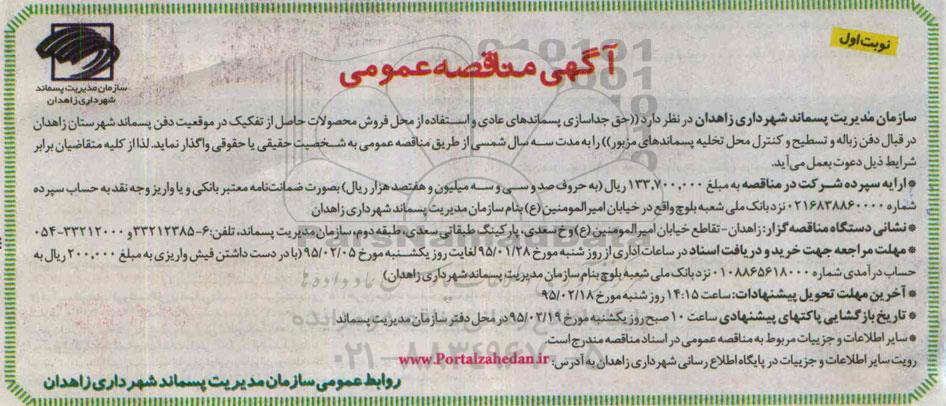 نوبت اول
آگهی مناقصه عمومی
سازمان مدیریت پسماند
شهرداری زاهدان
سازمان مدیریت پسماند شهرداری زاهدان در نظر دارد ((حق جداسازی پسماندهای عادی و استفاده از محل فروش محصولات حاصل از تفکیک در موقعیت دفن پسماند شهرستان زاهدان
در قبال دفن زباله و تسطیح و کنترل محل تخلیه پسماندهای مزبور)) را به مدت سه سال شمسی از طریق مناقصه عمومی به شخصیت حقیقی یا حقوقی واگذار نماید. لذا از کلیه متقاضیان برابر
شرایط ذیل دعوت بعمل می آید.
* ارایه سپرده شرکت در مناقصه به مبلغ ۱۳۳,۷۰۰,۰۰۰ ریال (به حروف صد و سی و سه میلیون و هفتصد هزار ریال) بصورت ضمانت‌نامه معتبر بانکی و یا واریز وجه نقد به حساب سپرده
شماره ۰۲۱۶۸۳۸۸۶۰۰۰۰ نزد بانک ملی شعبه بلوچ واقع در خیابان امیرالمومنین (ع) بنام سازمان مدیریت پسماند شهرداری زاهدان
* نشانی دستگاه مناقصه گزار: زاهدان - تقاطع خیابان امیرالمومنین (ع) و خ سعدی، پارکینگ طبقاتی سعدی، طبقه دوم، سازمان مدیریت پسماند، تلفن: ۶-۳۳۲۱۲۳۸۵ و ۳۳۲۱۲۰۰۰-۰۵۴
* مهلت مراجعه جهت خرید و دریافت اسناد در ساعات اداری از روز شنبه مورخ ۹۵/۰۱/۲۸ لغایت روز یکشنبه مورخ ۹۵/۰۲/۰۵ (با در دست داشتن فیش واریزی به مبلغ ۲۰۰,۰۰۰ ریال به
حساب درآمدی شماره ۰۱۰۸۸۶۵۶۱۸۰۰۰ نزد بانک ملی شعبه بلوچ بنام سازمان مدیریت پسماند شهرداری زاهدان)
* آخرین مهلت تحویل پیشنهادات: ساعت ۱۴:۱۵ روز شنبه مورخ ۹۵/۰۲/۱۸
* تاریخ بازگشایی پاکتهای پیشنهادی ساعت ۱۰ صبح روز یکشنبه مورخ ۹۵/۰۲/۱۹ در محل دفتر سازمان مدیریت پسماند
* سایر اطلاعات و جزییات مربوط به مناقصه عمومی در اسناد مناقصه مندرج است.
رویت سایر اطلاعات و جزییات در پایگاه اطلاع رسانی شهرداری زاهدان به آدرس: www.Portalzahedan.ir
روابط عمومی سازمان مدیریت پسماند شهرداری زاهدان
۰۲۱-۸۸۳۴۹۶۷۰